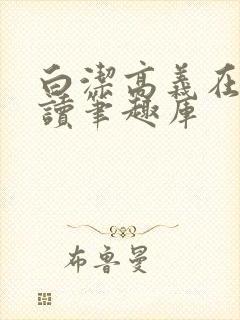 白潔高義在
讀筆趣庫
布魯曼